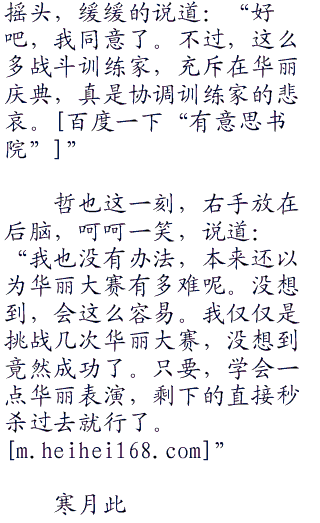 摇头，缓缓的说道：“好
吧，我同意了。不过，这么
多战斗训练家，充斥在华丽
庆典，真是协调训练家的悲
哀。[百度一下“有意思书
院”]”
哲也这一刻，右手放在
后脑，呵呵一笑，说道：
“我也没有办法，本来还以
为华丽大赛有多难呢。没想
到，会这么容易。我仅仅是
挑战几次华丽大赛，没想到
竟然成功了。只要，学会一
点华丽表演，剩下的直接秒
杀过去就行了。
[m.heihei168.com]”
寒月此